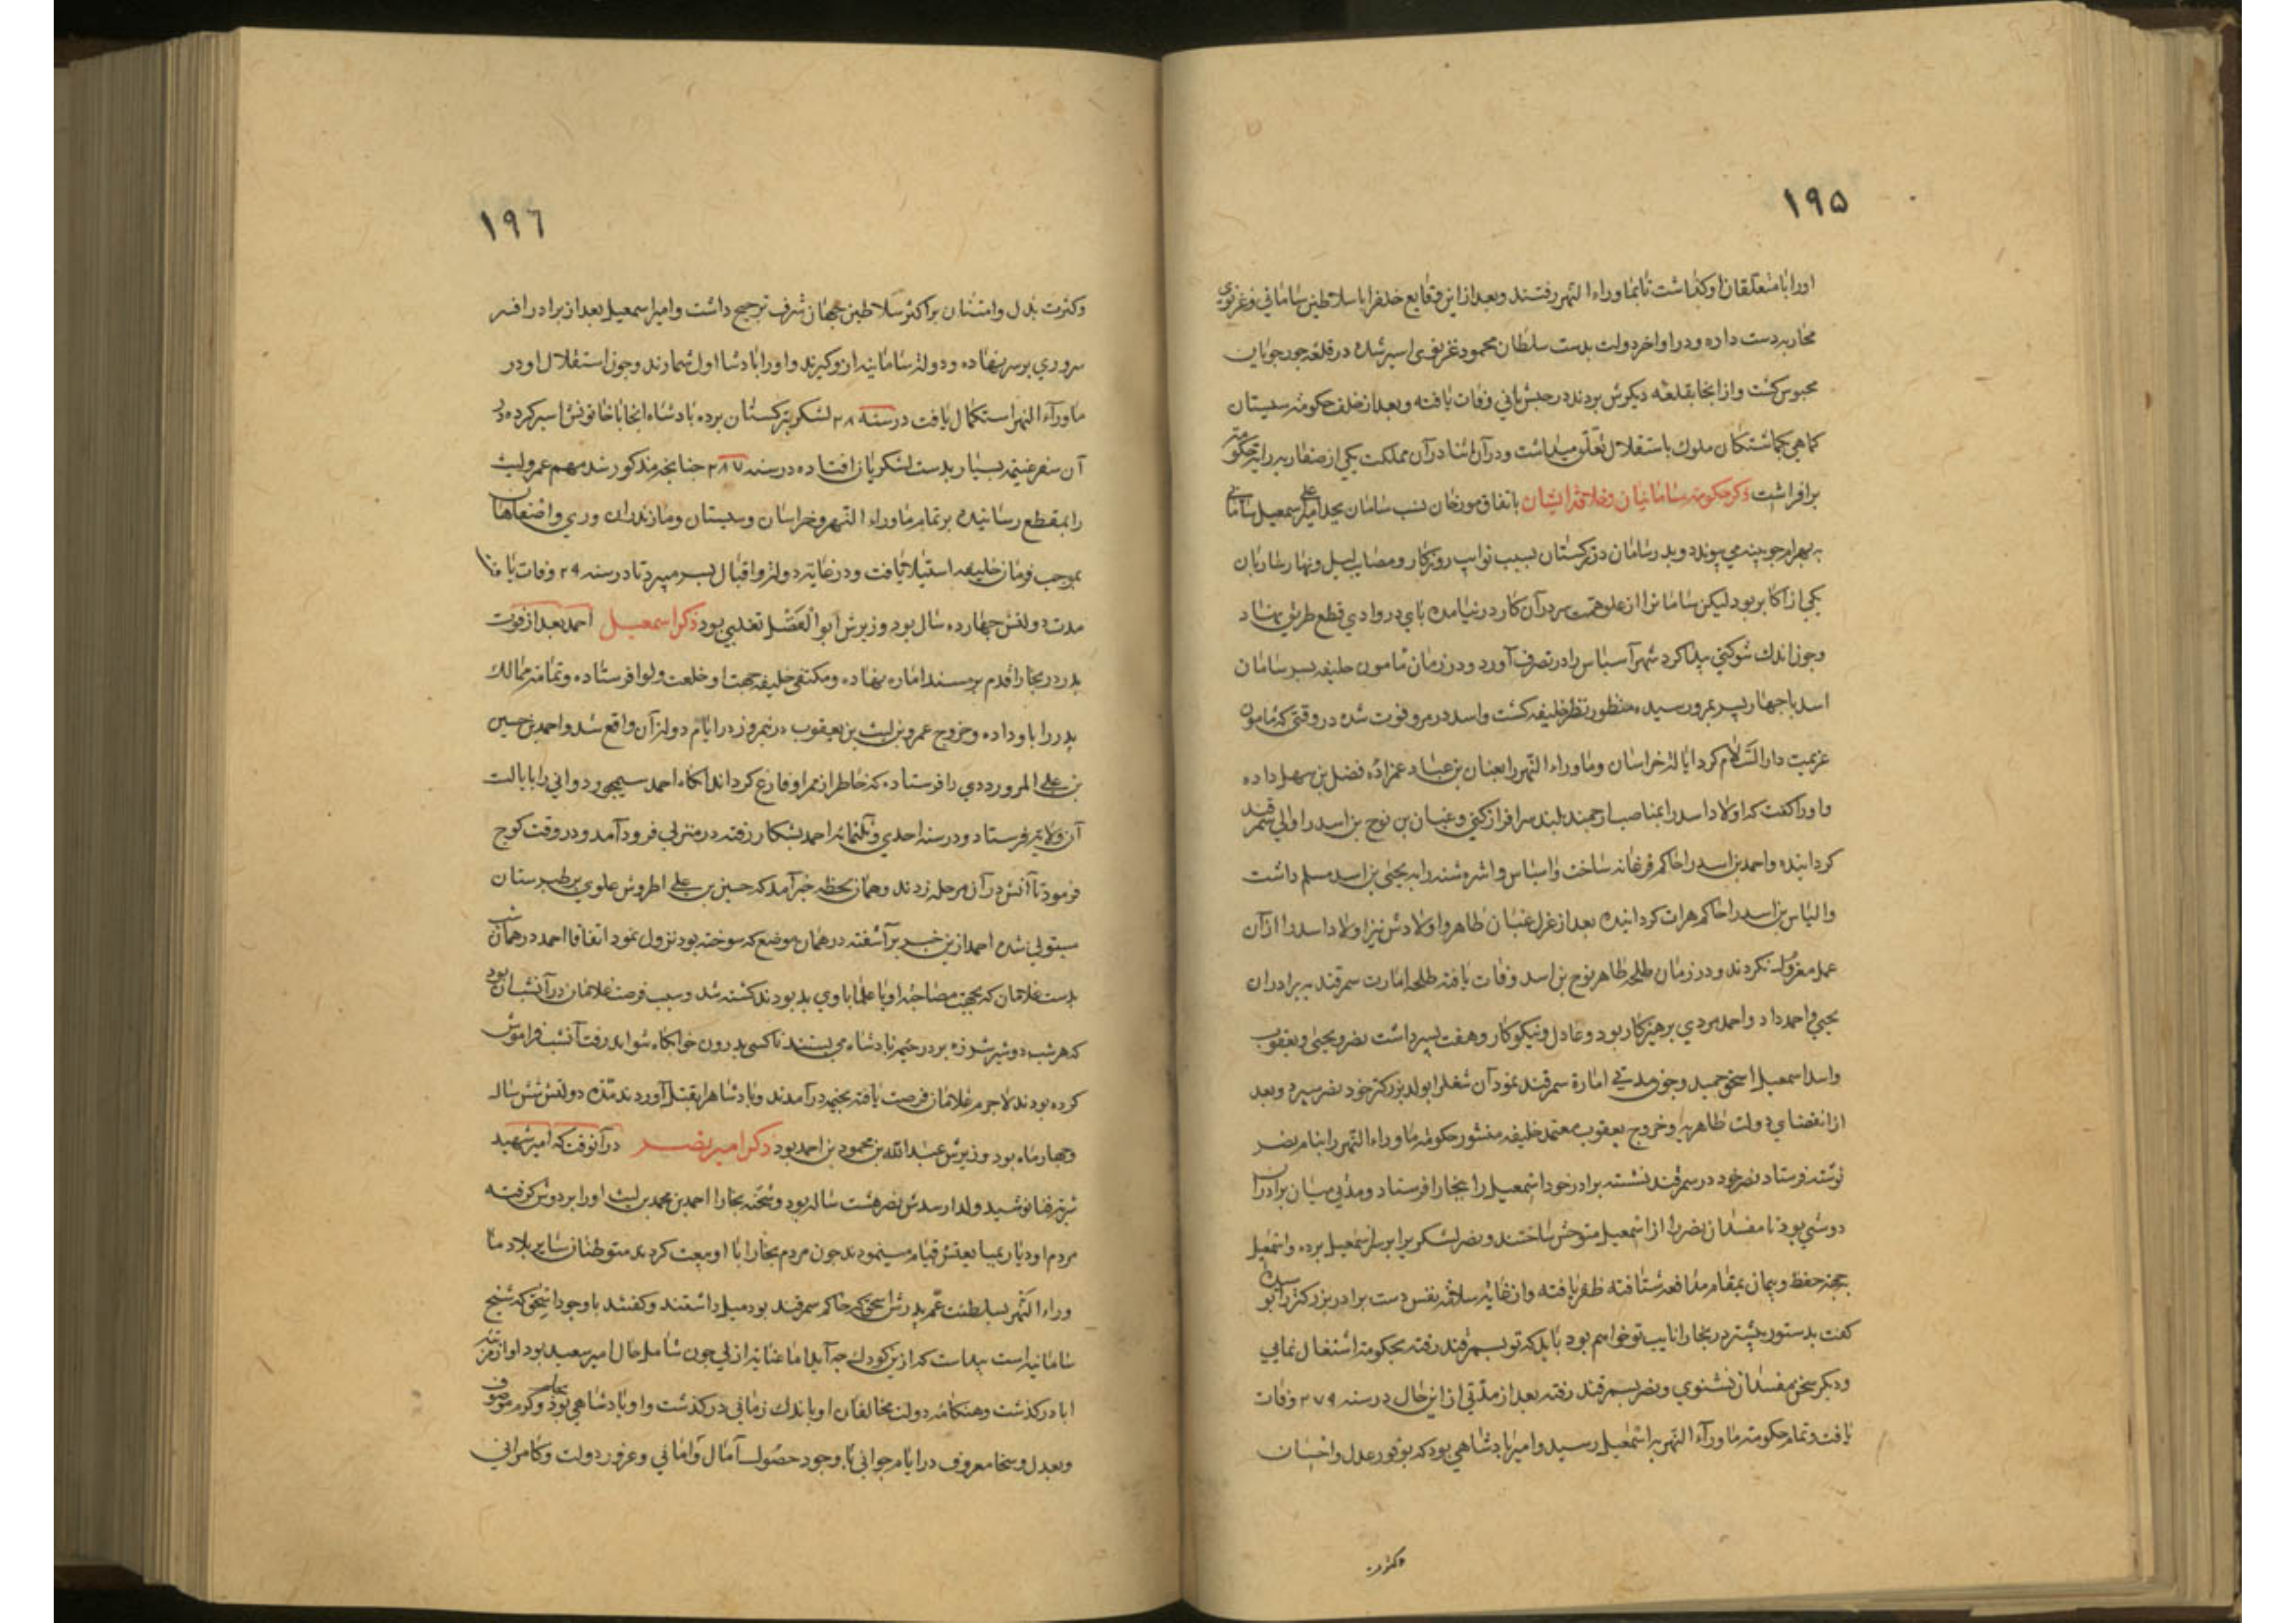 ۱۹۵
اورا با متعلقان او کذاشت تا بماوراء النهر رفتند و بعد از این وقایع خلف را با سلاطین سامانی و غزنوی
محاربه دست داده و در اواخر دولت بدست سلطان محمود غزنوی اسیر شده در قلعه جورجویان
محبوس کشت و از انجا بقلعه دیکرش بردند در حبس ثانی وفات یافته و بعد از خلف حکومت سیستان
کماهی بکماشتکان ملوک باستقلال تعلق میداشت و در آن اثنا در آن مملکت یکی از صفاریه رایة حکومة
برافراشت ذکر حکومة سامانیان و خلافة ایشان باتفاق مورخان نسب سامان بجد اعلی امیر اسمعیل سامانی
به بهرام چوبینه می پیوندد و پدر سامان در ترکستان بسبب نوایب روزکار و مصایب لیل و نهار ساربان
یکی از اکابر بود لیکن سامان را از علو همت سر در آن کار در نیامده پای در وادی قطع طریق نهاد
و چون اندک شوکتی پیدا کرد شهر آسپاس را در تصرف آورد و در زمان مامون خلیفه پسر سامان
اسد با چهار پسر بمرو رسیده منظور نظر خلیفه کشت و اسد در مرو فوت شده در وقتی که مامون
عزیمت دار السلام کرد ایالة خراسان و ماوراء النهر را بغسان بن عباد عمزاده فضل بن سهل داده
و اورا کفت که اولاد اسد را بمناصب ارجمند بلند سرافراز کنی و غسان بن نوح بن اسد را والی سمرقند
کردانیده و احمد بن اسد را حاکم فرغانه ساخت و اسپاس و اشروشنه را به یحیی بن اسد مسلم داشت
و الیاس بن اسد را حاکم هرات کردانیده بعد از عزل غسان طاهر و اولادش نیز اولاد اسد را از آن
عمل معزول نکردند و در زمان طلحه طاهر نوح بن اسد وفات یافته طلحه امارت سمرقند به برادران
یحیی و احمد داد و احمد مردی پرهیزکار بود و عادل و نیکوکار و هفت پسر داشت نصر و یحیی و یعقوب
و اسد اسمعیل اسحق حمید و چون مدتی امارة سمرقند نمود آن شغل را بولد بزرکتر خود نصر سپرد و بعد
از انقضای دولت طاهریه و خروج یعقوب معتمد خلیفه منشور حکومة ماوراء النهر را بنام نصر
نوشته فرستاد نصر خود در سمرقند نشسته برادر خود اسمعیل را ببخارا فرستاد و مدتی میان برادران
دوستی بود تا مفسدان نصر را از اسمعیل متوحش ساختند و نصر لشکر برابر سر اسمعیل برده و اسمعیل
بجهة حفظ و پیمان بمقام مدافعه شتافته ظفر یافته و از غایة سلامة نفس دست برادر بزرکتر را بوسیده
کفت بدستور پیشتر در بخارا نایب تو خواهم بود باید که تو بسمرقند رفته بحکومة اشتغال نمایی
و دیکر سخن مفسدان نشنوی و نصر بسمرقند رفته بعد از مدتی از این حال در سنه ۲۷۹ وفات
یافت و تمام حکومة ماورآء النهر به اسمعیل رسید و امیر پادشاهی بود که بوفور عدل و احسان
وکثرت
۱۹٦
وکثرت بذل و امتنان بر اکثر سلاطین جهان شرف ترجیح داشت و امیر اسمعیل بعد از برادر افسر
سروری بر سر نهاده و دولة سامانیه از و کیرند و اورا پادشاه اول شمارند و چون استقلال او در
ماورآء النهر استکمال یافت در سنه ۲۸ لشکر بترکستان برده پادشاه انجا با خاتونش اسیر کرده در
آن سفر غنیمة بسیار بدست لشکریان افتاده در سنه ۲۸۷ چنانچه مذکور شد مهم عمرو لیث
را بمقطع رسانیده بر تمام ماوراء النهر و خراسان و سیستان و مازندران و ری و اصفاهان
بموجب فرمان خلیفه استیلا یافت و در غایة دولة و اقبال بسر میبرد تا در سنه ۲۹ وفات یافت
مدت دولتش چهارده سال بود وزیرش ابو الفضل تغلبی بود ذکر اسمعیل احمد بعد از فوت
پدر در بخارا قدم بر مسند امارة نهاده و مکتفی خلیفه جهت او خلعت و لوا فرستاده و تمامة ممالک
پدر را باو داده و خروج عمرو بن لیث بن یعقوب در نیمروز در ایام دولة آن واقع شد و احمد بن حسین
بن علی المروردی را فرستاده که خاطر از ممر او فارغ کرداند انکاه احمد سیمجور دوانی را بایالت
آن ولایة فرستاد و در سنه احدی و ثلثمائه احمد بشکار رفته در منزلی فرود آمد و در وقت کوچ
فرمود تا آتش در آن مرحله زدند و همان لحظه خبر آمد که حسین بن علی اطروش علوی بر طبرستان
مستولی شده احمد ازین خبر برآشفته در همان موضع که سوخته بود نزول نمود اتفاقا احمد در همان شب
بدست غلامان که بجهت مصاحبة او با علما با وی بد بودند کشته شد و سبب فرصت غلامان در آنشب آن بود
که هر شب دو شیر شرزه بر در خیمه پادشاه می بستند تا کسی بدرون خوابکاه نتواند رفت آنشب فراموش
کرده بودند لاجرم غلامان فرصت یافته بخیمه درآمدند و پادشاه را بقتل آوردند مدة دولتش شش سال
و چهار ماه بود وزیرش عبد الله بن محمود بن احمد بود ذکر امیر نصر در آنوقت که امیر شهید
شربة فنا نوشید ولد ارشدش نصر هشت ساله بود و شحنه بخارا احمد بن محمد بن لیث اورا بر دوش کرفته
مردم او دیار بمبایعتش قیام مینمودند چون مردم بخارا با او بیعت کردند متوطنان سایر بلاد ما
وراء النهر بسلطنت عم پدرش اسحق که حاکم سمرقند بود میل داشتند و کفتند با وجود اسحق که شیخ
سامانیه است پیداست که ازین کودک چه آید اما عنایة ازلی چون شامل حال امیر سعید بود او از مرتبه
ابا در کذشت و هنکامه دولت مخالفان او باندک زمانی در کذشت و او پادشاهی بود بحلم و کرم موصوف
و بعدل و سخا معروف در ایام جوانی با وجود حصول آمال و امانی و غرور دولت و کامرانی